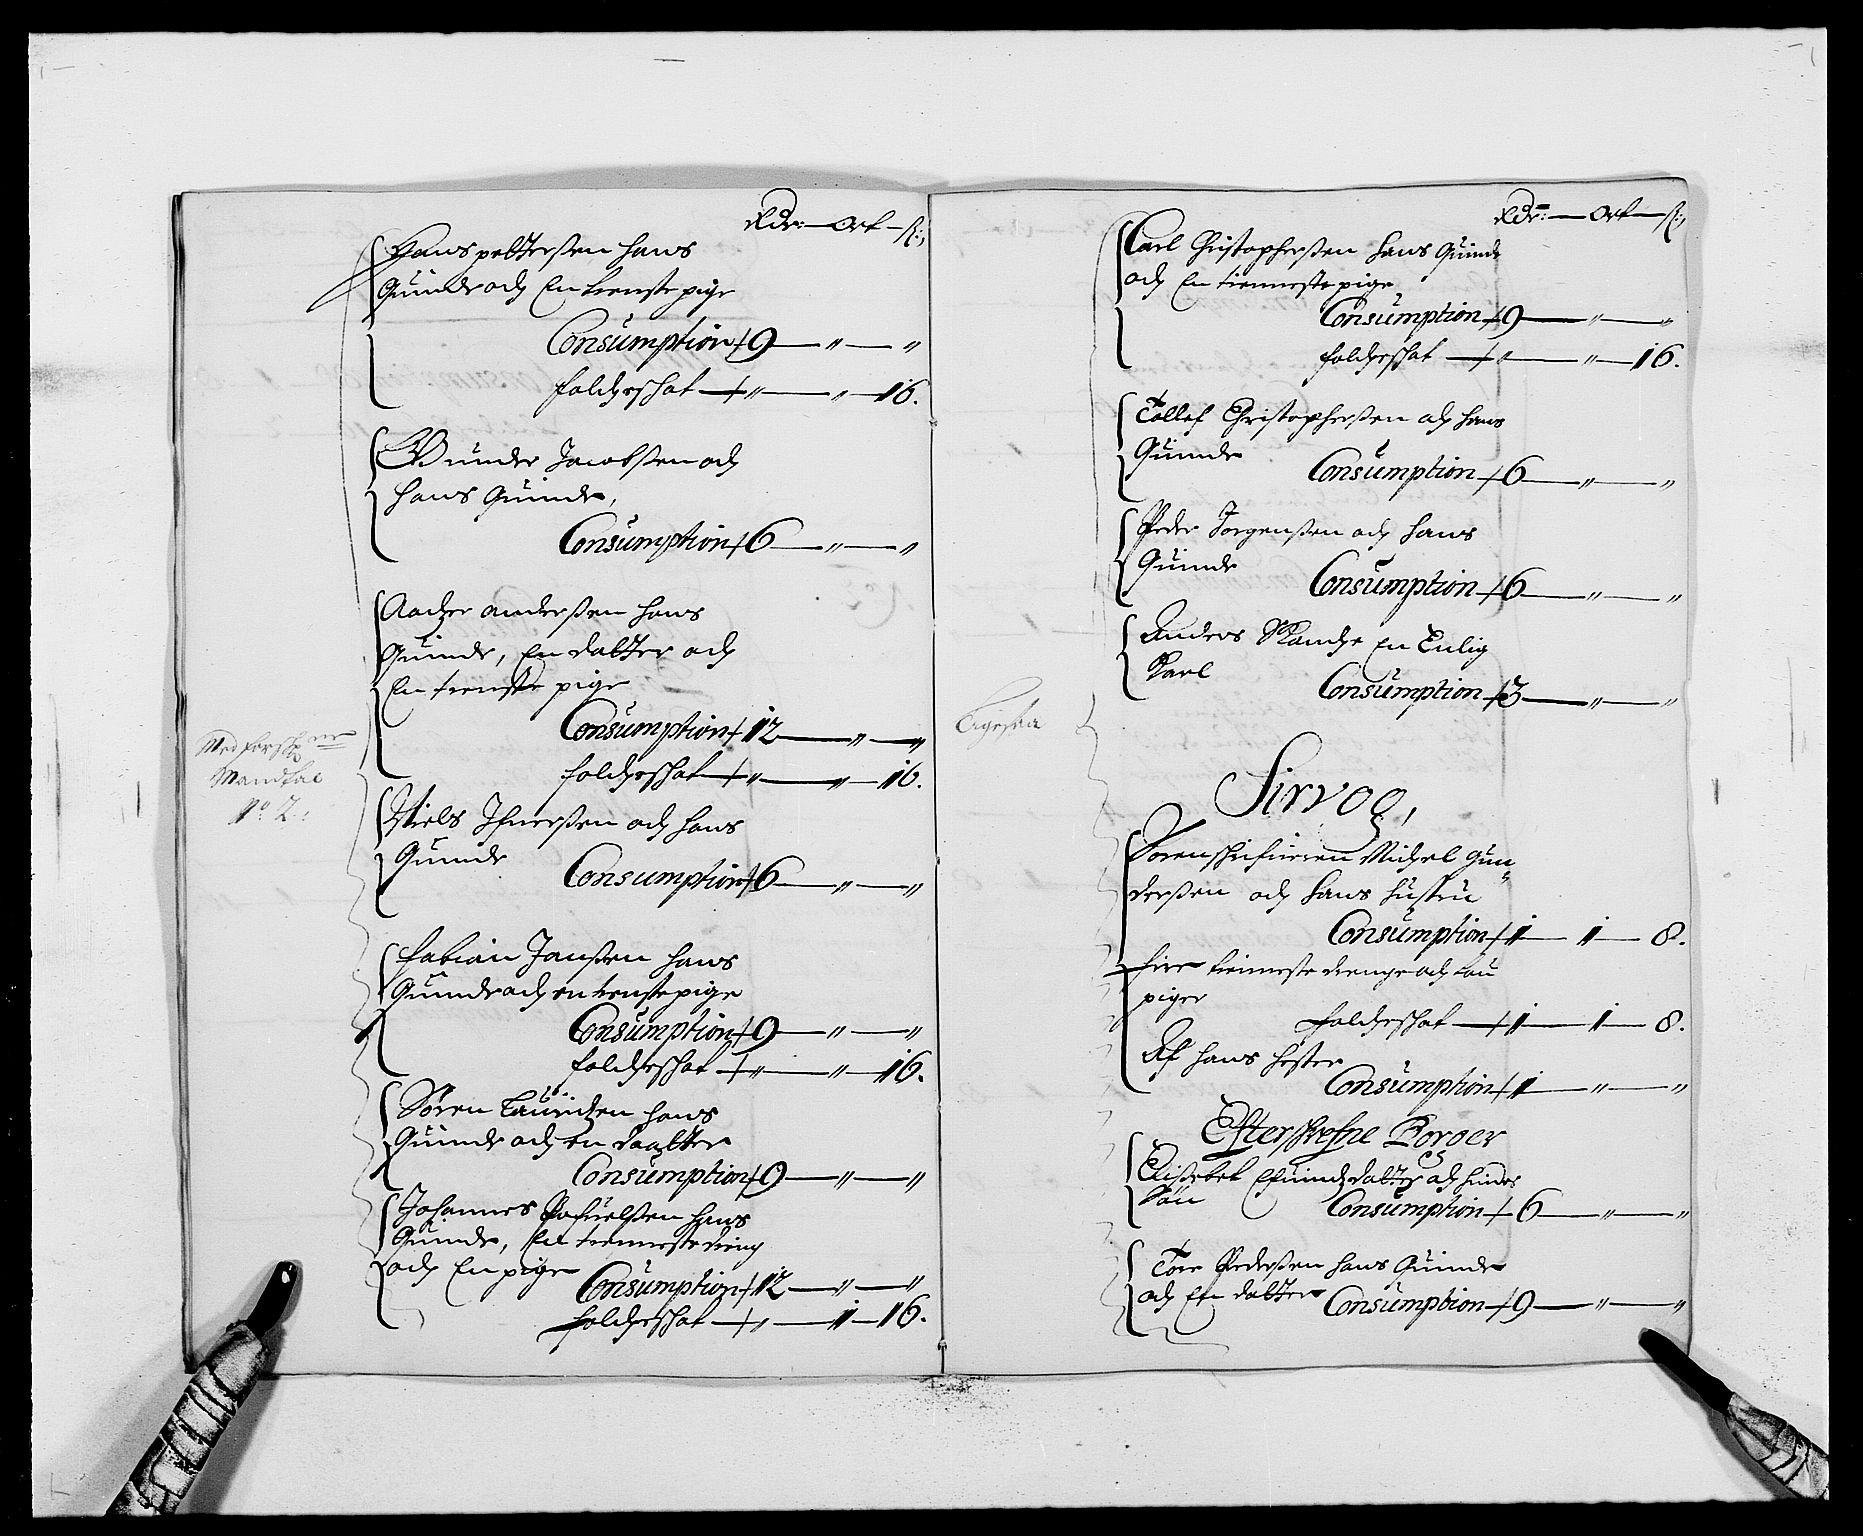 Rdr: — Ort — ſ:
Hans petterßen hans
Quinde och En tienste pige
Consumption + 9 — " — "
folcheschat + " — " — 16.
Gunder Jacobßen och
hans Quinde,
Consumption + 6 — " — "
Aache anderßen hans
Quinde, En datter och
En tienste pige
Consumption + 12 — " — "
folcheschat + " — " — 16.
Med
Mandtal
No. 2.
Niels och hans
Quinde
Consumption + 6 — " — "
fabian Janßen hans
Quinde och en tienste pige
Consumption + 9 — " — "
folcheschat + " — " — 16.
Sören Lauridzen hans
Quinde och en daatter
Consumption + 9 — " — "
Johannes Pofuelßen hans
Quinde, En tienneste dreng
och En pige Consumption + 12 — " — "
folcheschat + " — 1 — 16.
Rdr: — Ort — ſ:
Carl Christopherßen hans Quinde
och En tienneste pige
Consumption + 9 — " — "
folcheschat + " — " — 16.
Tollef Christopherßen och hans
Quinde Consumption + 6 — " — "
Peder Jorgenßen och hans
Quinde Consumption + 6 — " — "
Anders Skandche En Enlig
Karl Consumption + 3 — " — "
Ligesaa
Sirvog,
Sorenschrifueren Michel Gun„
derßen och hans hustru
Consumption + 1 — 1 — 8.
fire tienneste drenge och tou
piger
folcheschat + 1 — 1 — 8.
Af hans hester
Consumption + 1 — " — "
Efterschrefne Borger
Elißebet Efuindzdatter och hindes
Sön Consumption + 6 — " — "
Tore Pederßen hans Quinde
och En datter Consumption + 9 — " — "